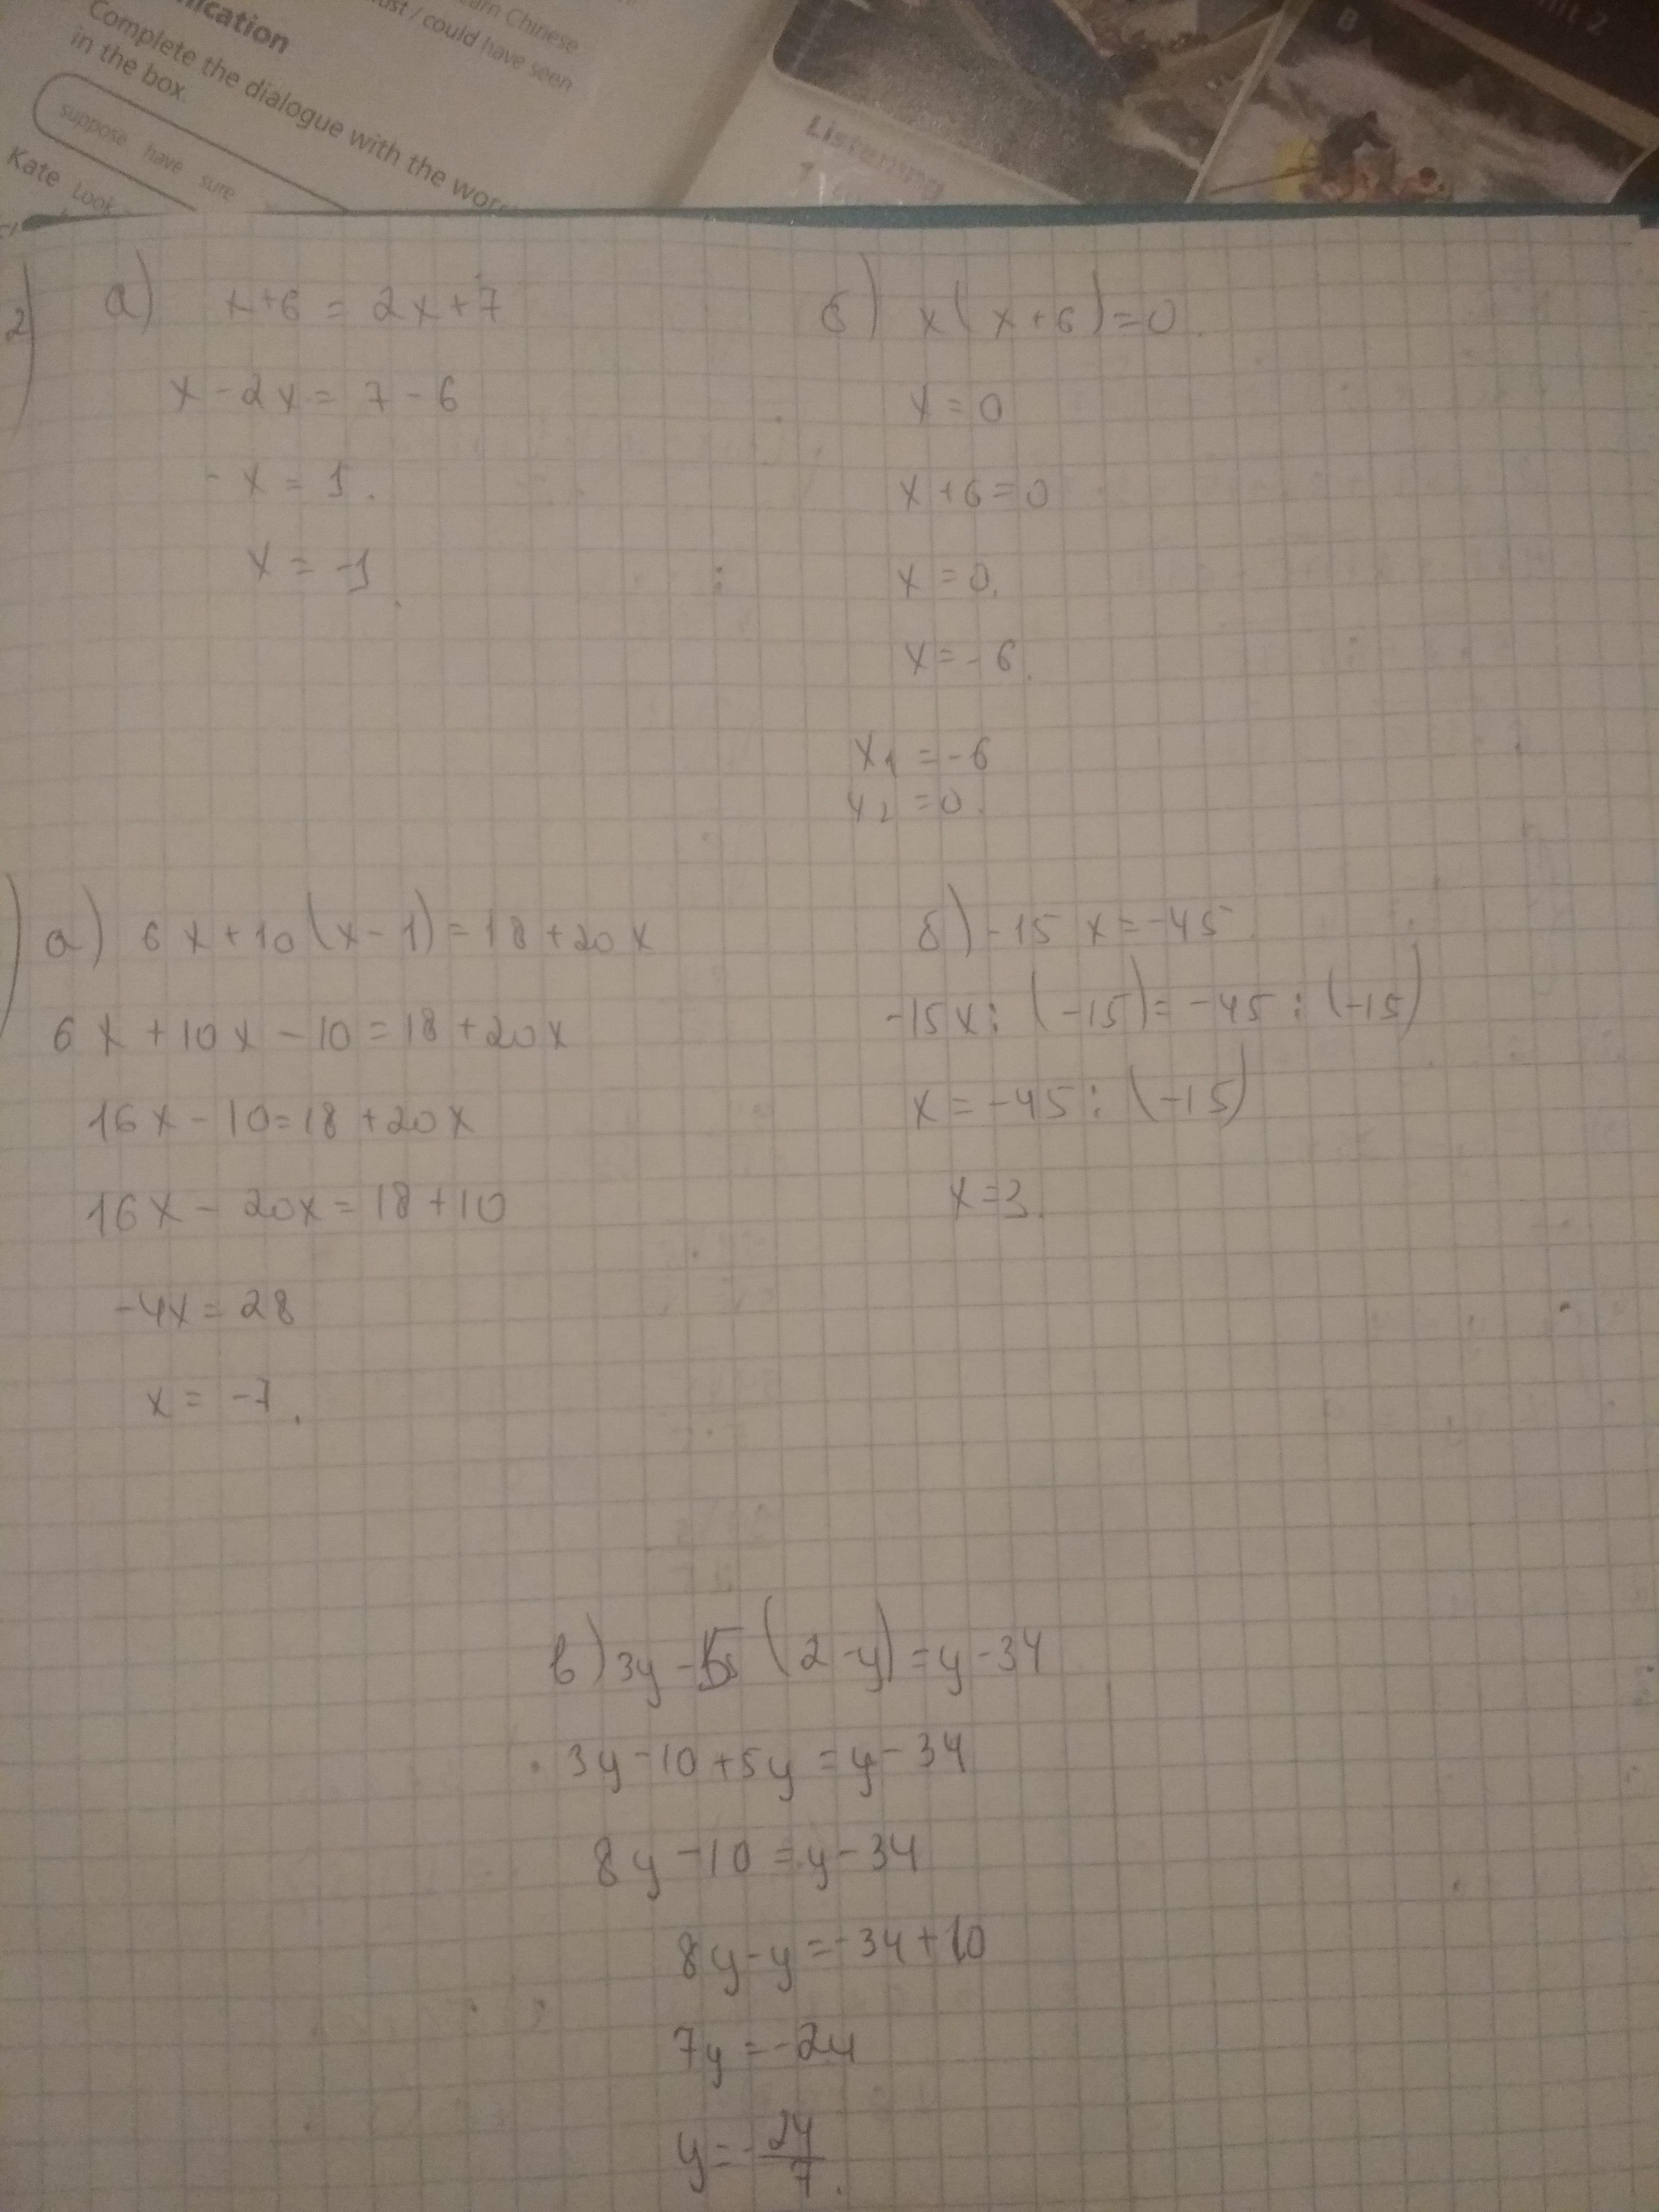 nication
Complete the dialogue with the
in the box.
suppose have sure
Kate Look
earn Chinese
ust / could have seen
Listening
1
B
nit 2
2) а) x+6 = 2x+7
x - 2x = 7 - 6
- x = 1.
x = -1.
б) x(x+6)=0.
x = 0
x+6=0
x = 0.
x = -6.
x1 = -6
x2 = 0.
) а) 6x+10(x-1)=18+20x
6x+10x-10=18+20x
16x-10=18+20x
16x-20x=18+10
-4x=28
x = -7.
б) -15x=-45
-15x:(-15)=-45:(-15)
x=-45:(-15)
x=3.
в) 3y-5(2-y)=y-34
3y-10+5y=y-34
8y-10=y-34
8y-y=-34+10
7y=-24
y=-24/7.